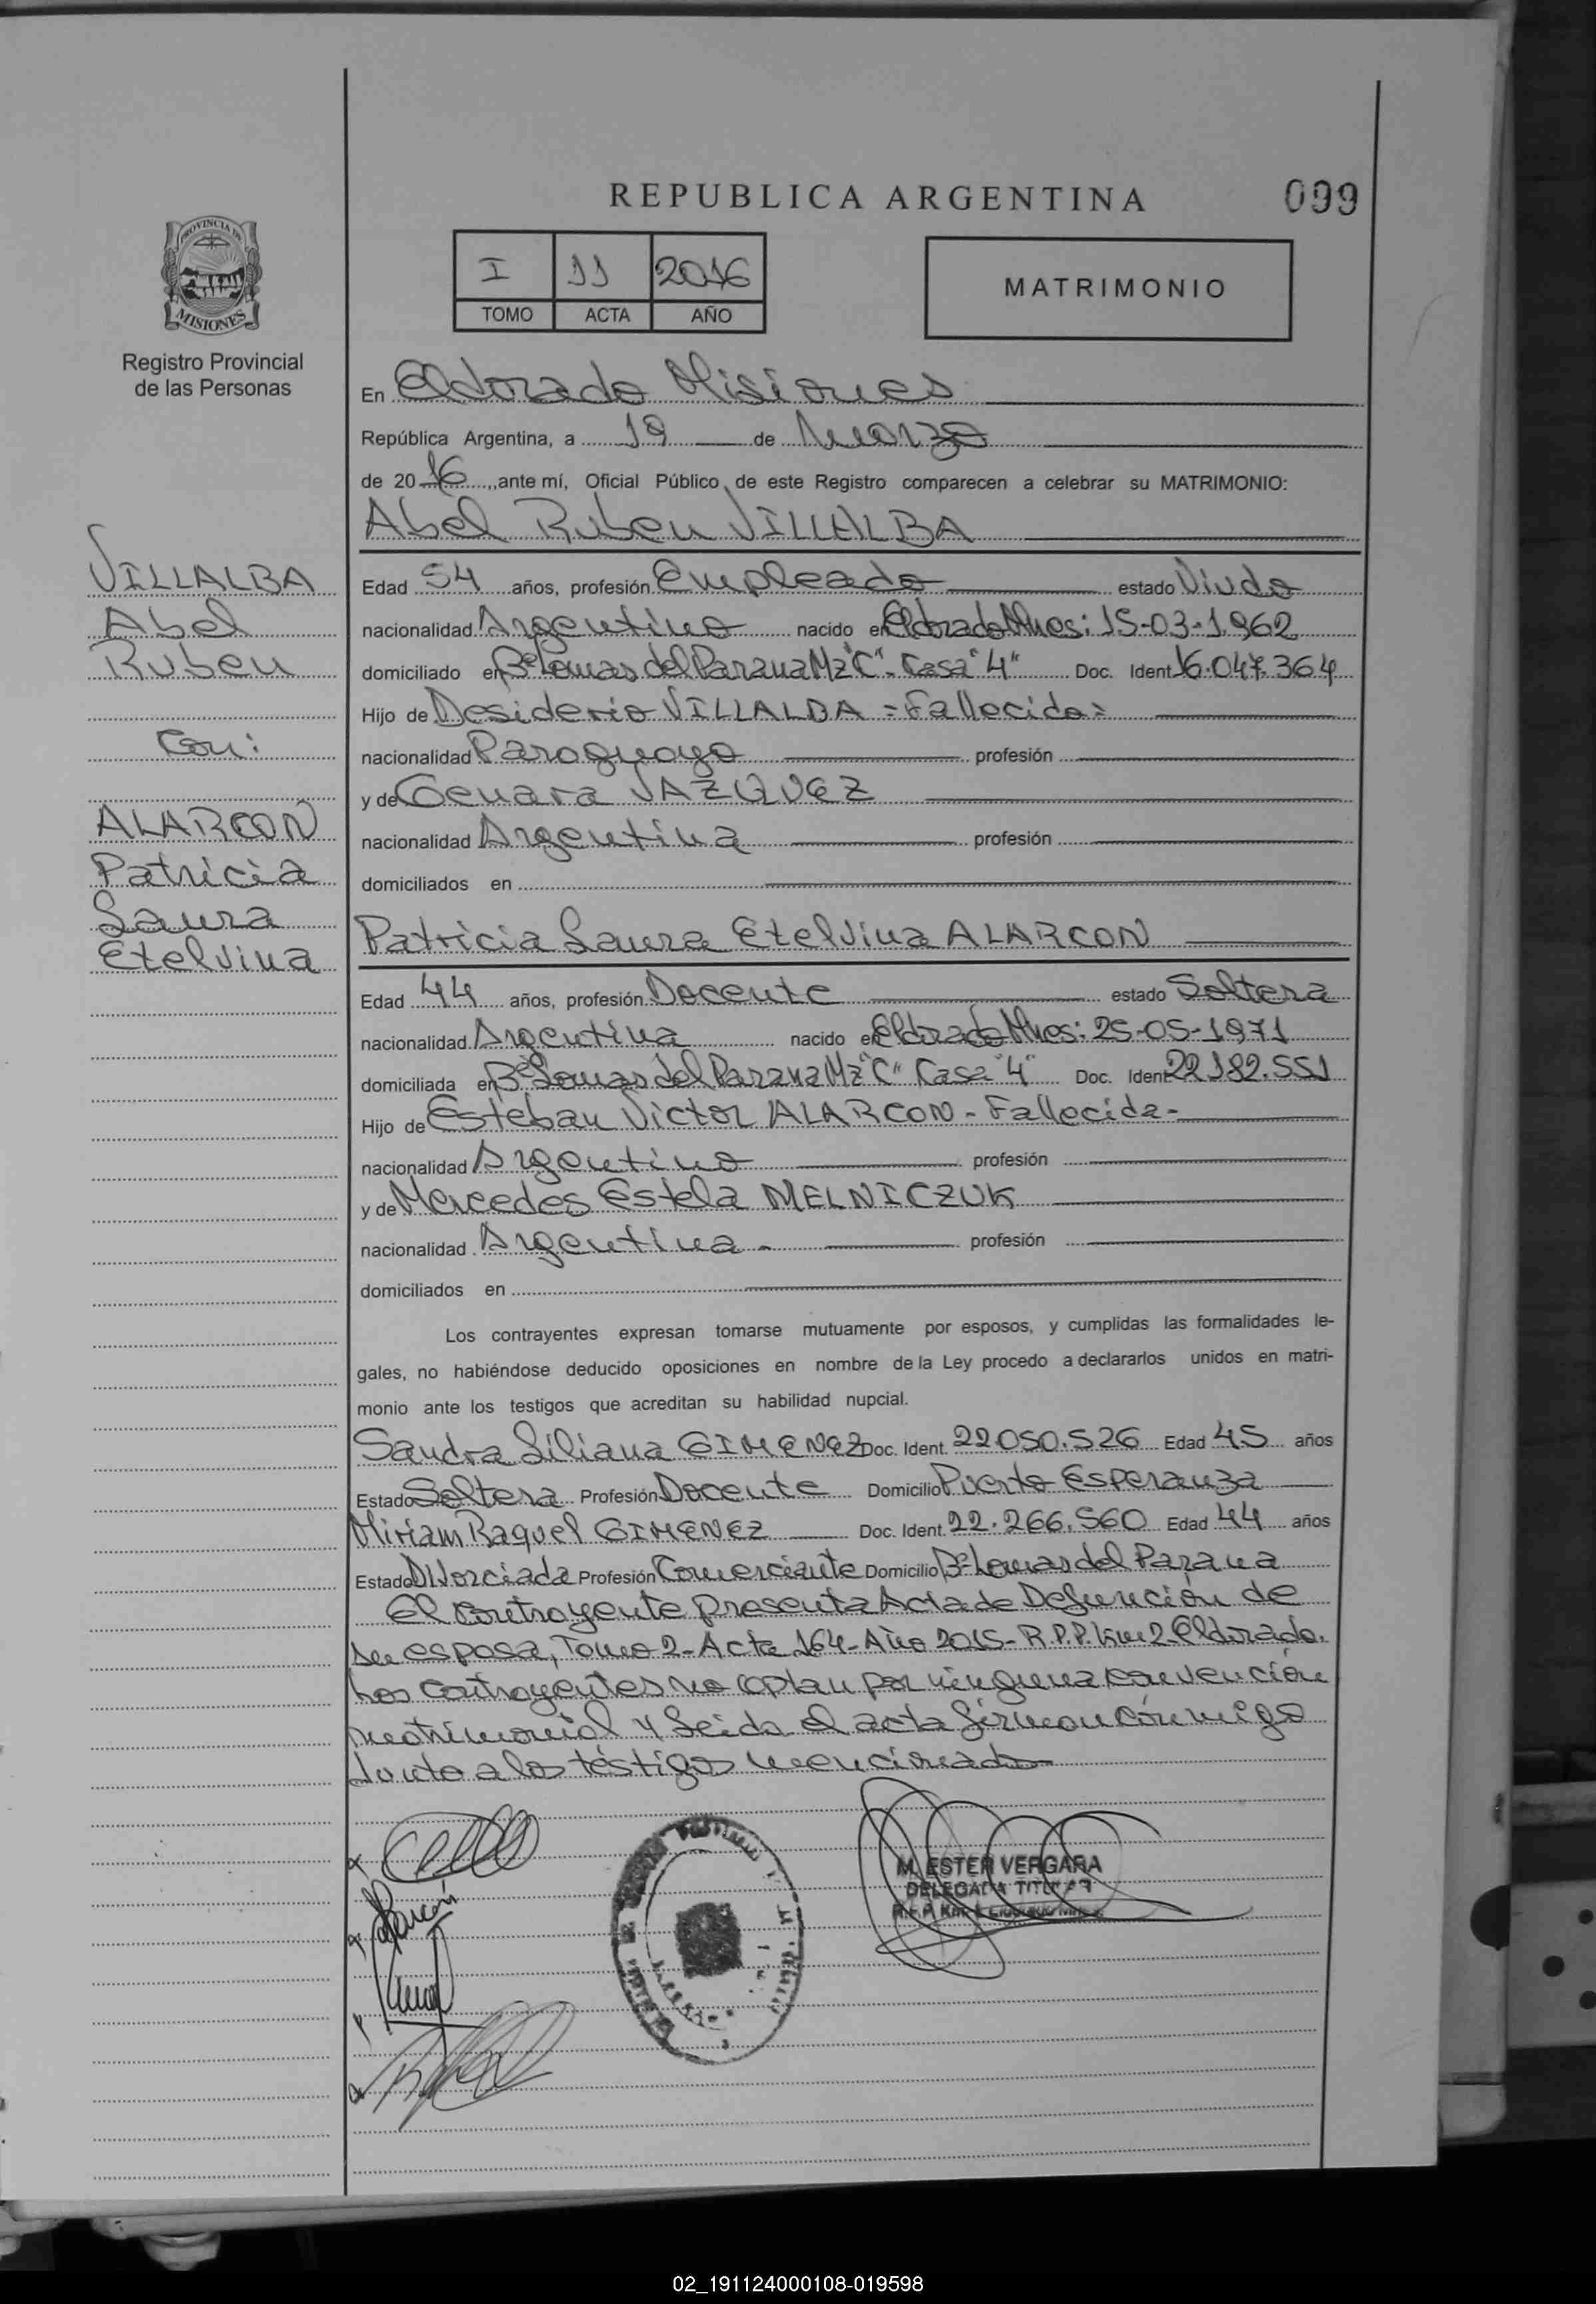 REPUBLICA ARGENTINA
099
I 11 2016
TOMO ACTA AÑO
MATRIMONIO
PROVINCIA DE
MISIONES
Registro Provincial
de las Personas
VILLALBA
Abel
Ruben
Con:
ALARCON
Patricia
Laura
Etelvina
En Eldorado Misiones
República Argentina, a 19 de Marzo
de 2016, ante mí, Oficial Público de este Registro comparecen a celebrar su MATRIMONIO:
Abel Ruben VILLALBA
Edad 54 años, profesión Empleado estado Viudo
nacionalidad Argentino nacido en Eldorado Mnes: 15-03-1962
domiciliado en Bº Lomas del Parana Mz "C" - Casa "4" Doc. Ident 16.047.364
Hijo de Desiderio VILLALBA = Fallecido =
nacionalidad Paraguayo profesión
y de Genara VAZQUEZ
nacionalidad Argentina profesión
domiciliados en
Patricia Laura Etelvina ALARCON
Edad 44 años, profesión Docente estado Soltera
nacionalidad Argentina nacido en Eldorado Mnes: 25-05-1971
domiciliada en Bº Lomas del Parana Mz "C" Casa "4" Doc. Ident 22.182.551
Hijo de Esteban Victor ALARCON - Fallecida -
nacionalidad Argentino profesión
y de Mercedes Estela MELNICZUK
nacionalidad Argentina - profesión
domiciliados en
Los contrayentes expresan tomarse mutuamente por esposos, y cumplidas las formalidades le-
gales, no habiéndose deducido oposiciones en nombre de la Ley procedo a declararlos unidos en matri-
monio ante los testigos que acreditan su habilidad nupcial.
Sandra Liliana GIMENEZ Doc. Ident. 22.050.526 Edad 45 años
Estado Soltera Profesión Docente Domicilio Puerto Esperanza
Miriam Raquel GIMENEZ Doc. Ident. 22.266.560 Edad 44 años
Estado Divorciada Profesión Comerciante Domicilio Bº Lomas del Parana
El contrayente presenta Acta de Defunción de
su esposa, Tomo 2 - Acta 164 - Año 2015 - R.P.P. Km 2 - Eldorado.
Los contrayentes no optan por ninguna convención
matrimonial y leida el acta firman conmigo
junto a los testigos mencionados
M. ESTER VERGARA
DELEGADA TITULAR
R.P.P. Km 2 Eldorado Mnes.
02_191124000108-019598